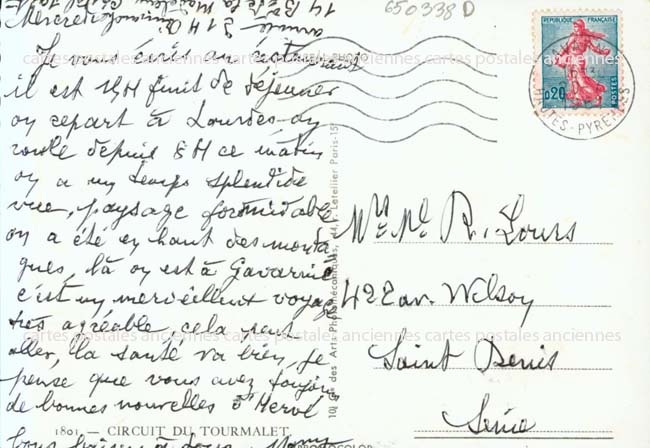 650338 D
Mercredi
arrivée 21 H
14 Bd de la
Je vous écris au restaurant
il est 14H finit de déjeuner
on repart à Lourdes on
roule depuis 8H ce matin
on a un temps splendide
vue, paysage formidable
on a été en haut des monta
gnes, là on est à Gavarnie
c'est un merveilleux voyage
très agréable, cela peut
aller, la santé va bien, je
pense que vous avez toujours
de bonnes nouvelles d'Hervé
1801. — CIRCUIT DU TOURMALET.
bons baisers à tous. Mamy
RÉPUBLIQUE FRANÇAISE
0,20
POSTES
HAUTES-PYRÉNÉES
Arts Photomécaniques, 44, r. Letellier Paris-15e
Mr Me R. Lours
42 Rav. Wilson
Saint Denis
Seine
cartes postales anciennes cartes postales anciennes cartes postales anciennes
cartes postales anciennes cartes postales anciennes cartes postales anciennes